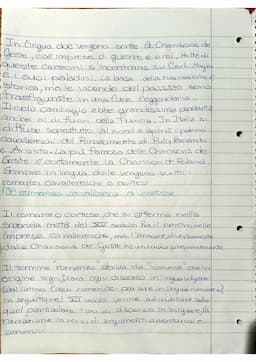 In lingua doc vengono scritte le Chansons de
Geste, cioè imprese di guerre e eroi. Molte di
queste canzoni si incontrano su Carlo Magno
e i suoi paladini. La base della narrazione è
storica, ma le vicende del passato sono
trasfigurate in una luce leggendaria.
Il ciclo carolingio ebbe grandissima popolarità
anche al di fuori della Francia. In Italia si
diffuse soprattutto al nord e ispirò i poemi
cavallereschi del Rinascimento di Pulci, Boiardo
e Ariosto. La più famosa delle Chansons de
Geste è certamente la Chanson de Roland.
Sempre in lingua d'oil vengono scritti i
romanzi cavallereschi o cortesi
Il romanzo cavalleresco o cortese
Il romanzo cortese, che si afferma nella
seconda metà del XII secolo ha il
imprese cavalleresche, ma l'amore,
dalle Chansons de Geste ha un ruolo preponderante
Il termine romanzo deriva da "romanz" che in
origine significava ogni discorso in lingua volgare
dal latino
in seguito nel XII secolo venne ad indicare solo
quel particolare tipo di discorso in volgare, la
narrazione in versi di argomenti avventurosi e
amorosi.